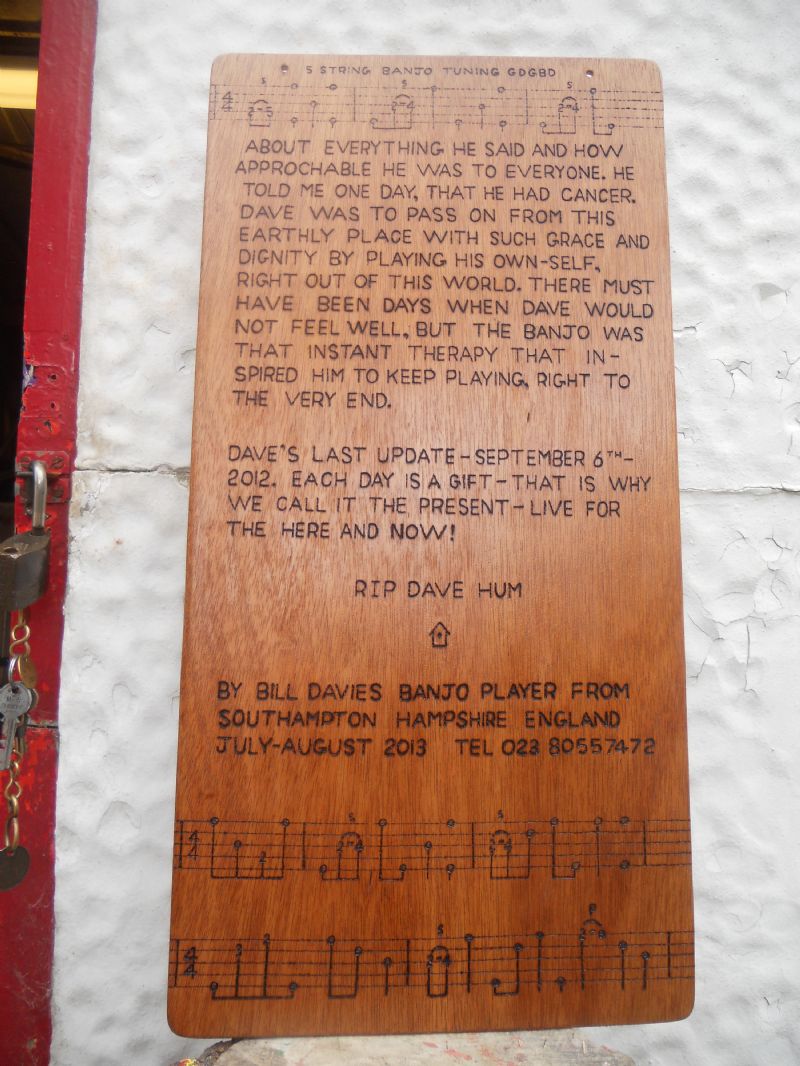 5 STRING BANJO TUNING GDGBD
ABOUT EVERYTHING HE SAID AND HOW
APPROCHABLE HE WAS TO EVERYONE. HE
TOLD ME ONE DAY, THAT HE HAD CANCER.
DAVE WAS TO PASS ON FROM THIS
EARTHLY PLACE WITH SUCH GRACE AND
DIGNITY BY PLAYING HIS OWN-SELF,
RIGHT OUT OF THIS WORLD. THERE MUST
HAVE BEEN DAYS WHEN DAVE WOULD
NOT FEEL WELL, BUT THE BANJO WAS
THAT INSTANT THERAPY THAT IN-
SPIRED HIM TO KEEP PLAYING, RIGHT TO
THE VERY END.
DAVE'S LAST UPDATE-SEPTEMBER 6TH-
2012. EACH DAY IS A GIFT-THAT IS WHY
WE CALL IT THE PRESENT-LIVE FOR
THE HERE AND NOW!
RIP DAVE HUM
BY BILL DAVIES BANJO PLAYER FROM
SOUTHAMPTON HAMPSHIRE ENGLAND
JULY-AUGUST 2013 TEL 023 80557472